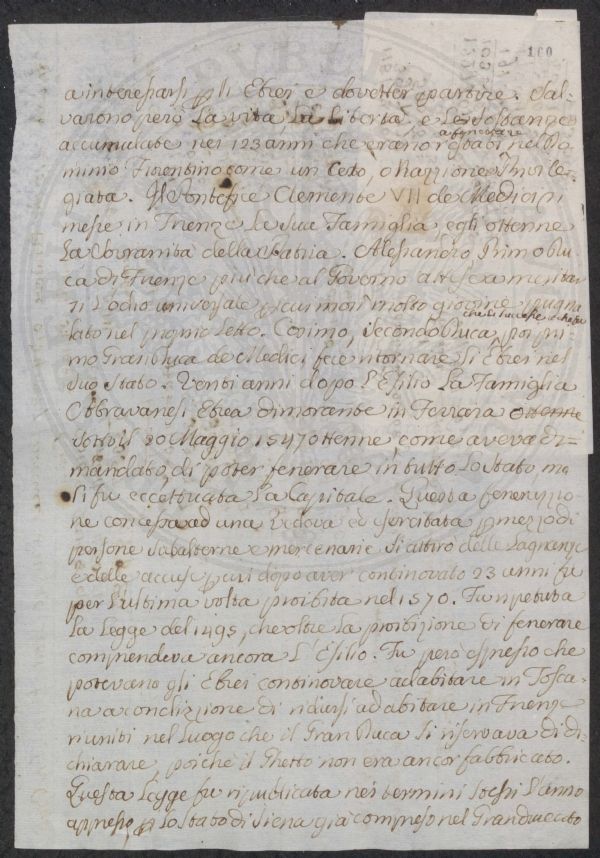 160
a interessarsi p gli Ebrei e dovetter partire. Sal-
varono però La vita La Libertà e Le sostanze
a fenerare
accumulate nei 123 anni che erano stati nel Do
minio Fiorentino come un Ceto, o Nazzione Privile-
giata. Il Pontefice Clemente VII de Medici ri
messe in Firenze La sua Famiglia, egli ottenne
La Sovranità della Patria. Alessandro Primo Du
ca di Firenze più che al Governo attese a meritar
si L'odio universale p cui morì molto giovine pugna
che li successe
lato nel proprio Letto. Cosimo, secondo Duca, poi pri
mo Granduca de Medici fece ritornare Li Ebrei nel
suo Stato. Venti anni dopo L'Esilio La Famiglia
Abravanesi Ebrea dimorante in Ferrara ottenne
sotto il 20 Maggio 1547 ottenne come aveva di=
mandato, di poter fenerare in tutto Lo Stato, ma
Li fu eccettuata La Capitale. Questa fenerazio
ne concessa ad una Vedova ed esercitata p mezzo di
persone subalterne e mercenarie si attirò delle Lagnanze
e delle accuse p cui dopo aver continovato 23 anni fu
per L'ultima volta proibita nel 1570. Fu ripetuta
La Legge del 1495, che oltre La proibizione di fenerare
comprendeva ancora L'Esilio. Fu però espresso che
potevano gli Ebrei continovare ad abitare in Tosca
na a condizzione di ridursi ad abitare in Firenze
riuniti nel Luogo che il Gran Duca si riservava di di-
chiarare, poichè il Ghetto non era ancor fabbricato.
Questa Legge fu ripublicata nei termini stessi L'anno
appresso p Lo Stato di Siena già compreso nel Granducato